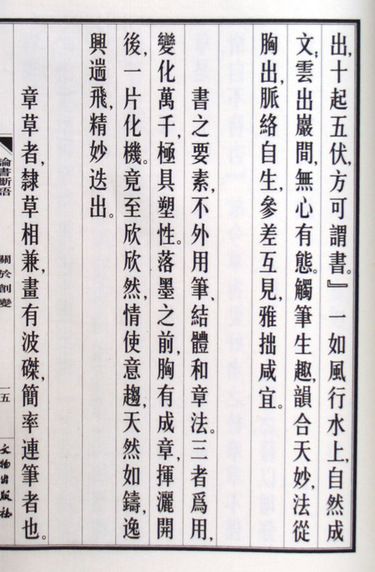 出，十起五伏，方可謂書。』一如風行水上，自然成
文；雲出巖間，無心有態。觸筆生趣，韻合天妙，法從
胸出，脈絡自生，參差互見，雅拙咸宜。
書之要素，不外用筆、結體和章法。三者爲用，
變化萬千，極具塑性。落墨之前，胸有成章，揮灑開
後，一片化機。竟至欣欣然，情使意趨，天然如鑄，逸
興遄飛，精妙迭出。
章草者，隸草相兼，畫有波磔，簡率連筆者也。
論書斷語
關於創變
一五
文物出版社